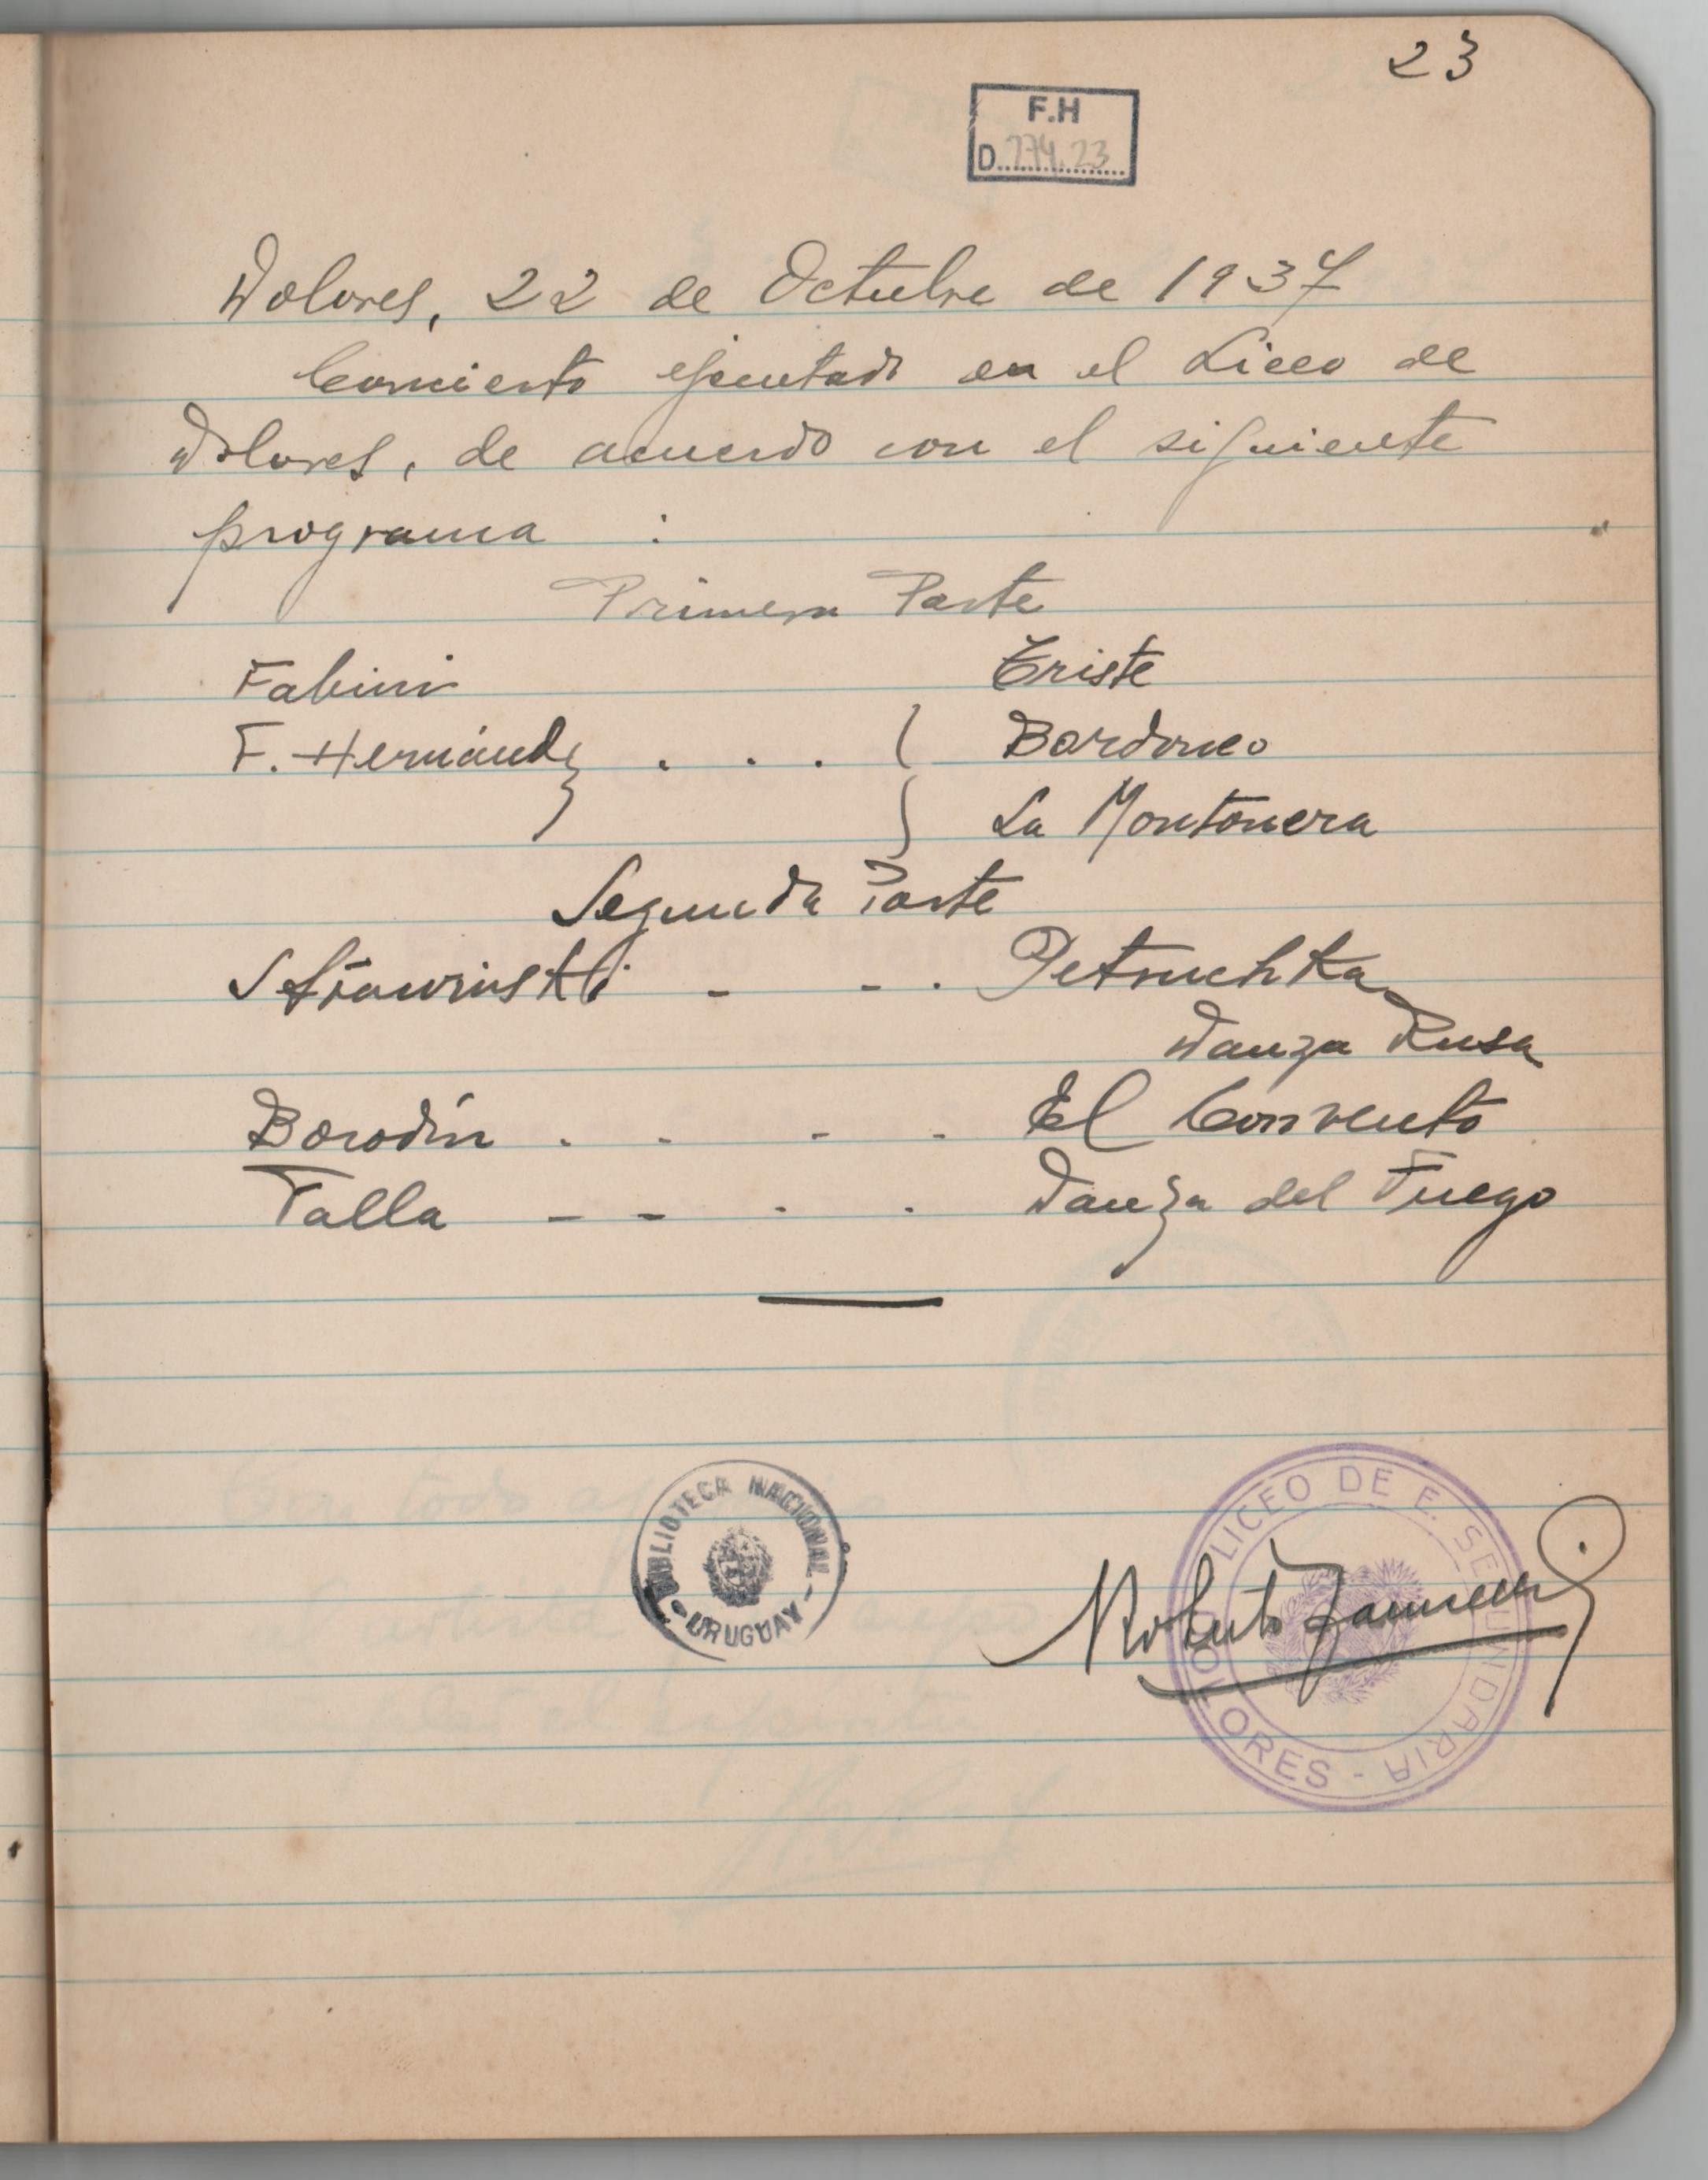 23
F.H
D. 274.23
Dolores, 22 de Octubre de 1937
Concierto ejecutado en el Liceo de
Dolores, de acuerdo con el siguiente
programa :
Primera Parte
Fabini Triste
F. Hernández . . . { Bordoneo
La Montonera
Segunda Parte
Strawinski - - . Petruchka
Danza Rusa
Borodín . . - . El Convento
Falla - - . . Danza del Fuego
BIBLIOTECA NACIONAL
- URUGUAY -
LICEO DE E. SECUNDARIA - DOLORES
Roberto